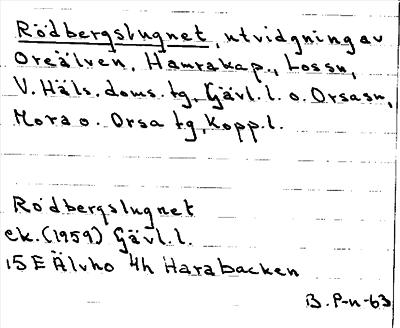 Rödbergslugnet, utvidgning av
Oreälven, Hamrakap., Lossn,
V. Häls. doms. tg, Gävl. l. o. Orsasn,
Mora o. Orsa tg, Kopp. l.
Rödbergslugnet
ek. (1959) Gävl. l.
15 E Älvho 4h Harabacken
B. P-n-63